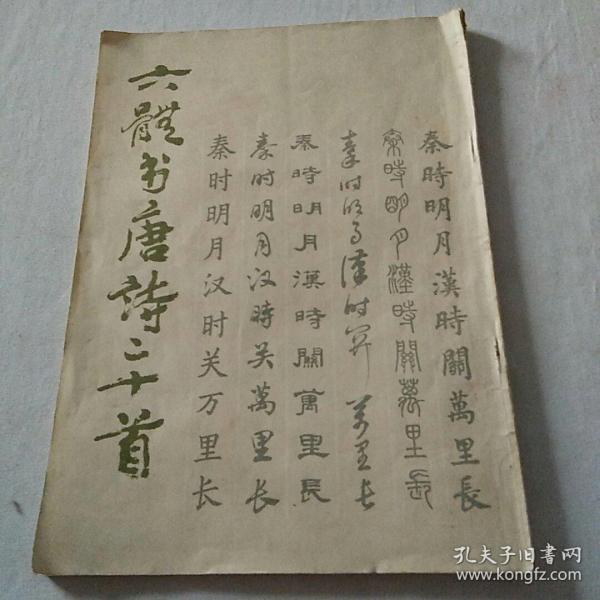 六體书唐詩二十首
秦時明月漢時關萬里長
秦時明月漢時關萬里長
秦时明月漢时关万里长
秦時明月漢時關萬里長
秦时明月汉時关萬里长
秦时明月汉时关万里长
孔夫子旧书网
www.kongfz.com